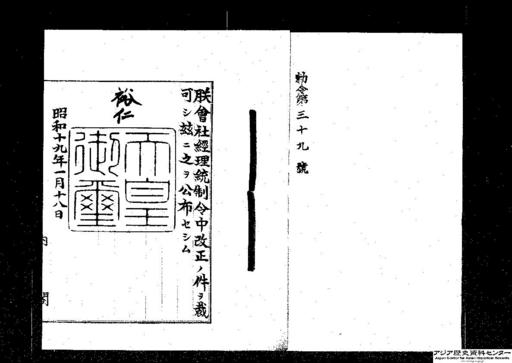 勅令第三十九號
朕會社經理統制令中改正ノ件ヲ裁
可シ茲ニ之ヲ公布セシム
裕仁
天皇
御璽
昭和十九年一月十八日
内閣
アジア歴史資料センター
Japan Center for Asian Historical Records